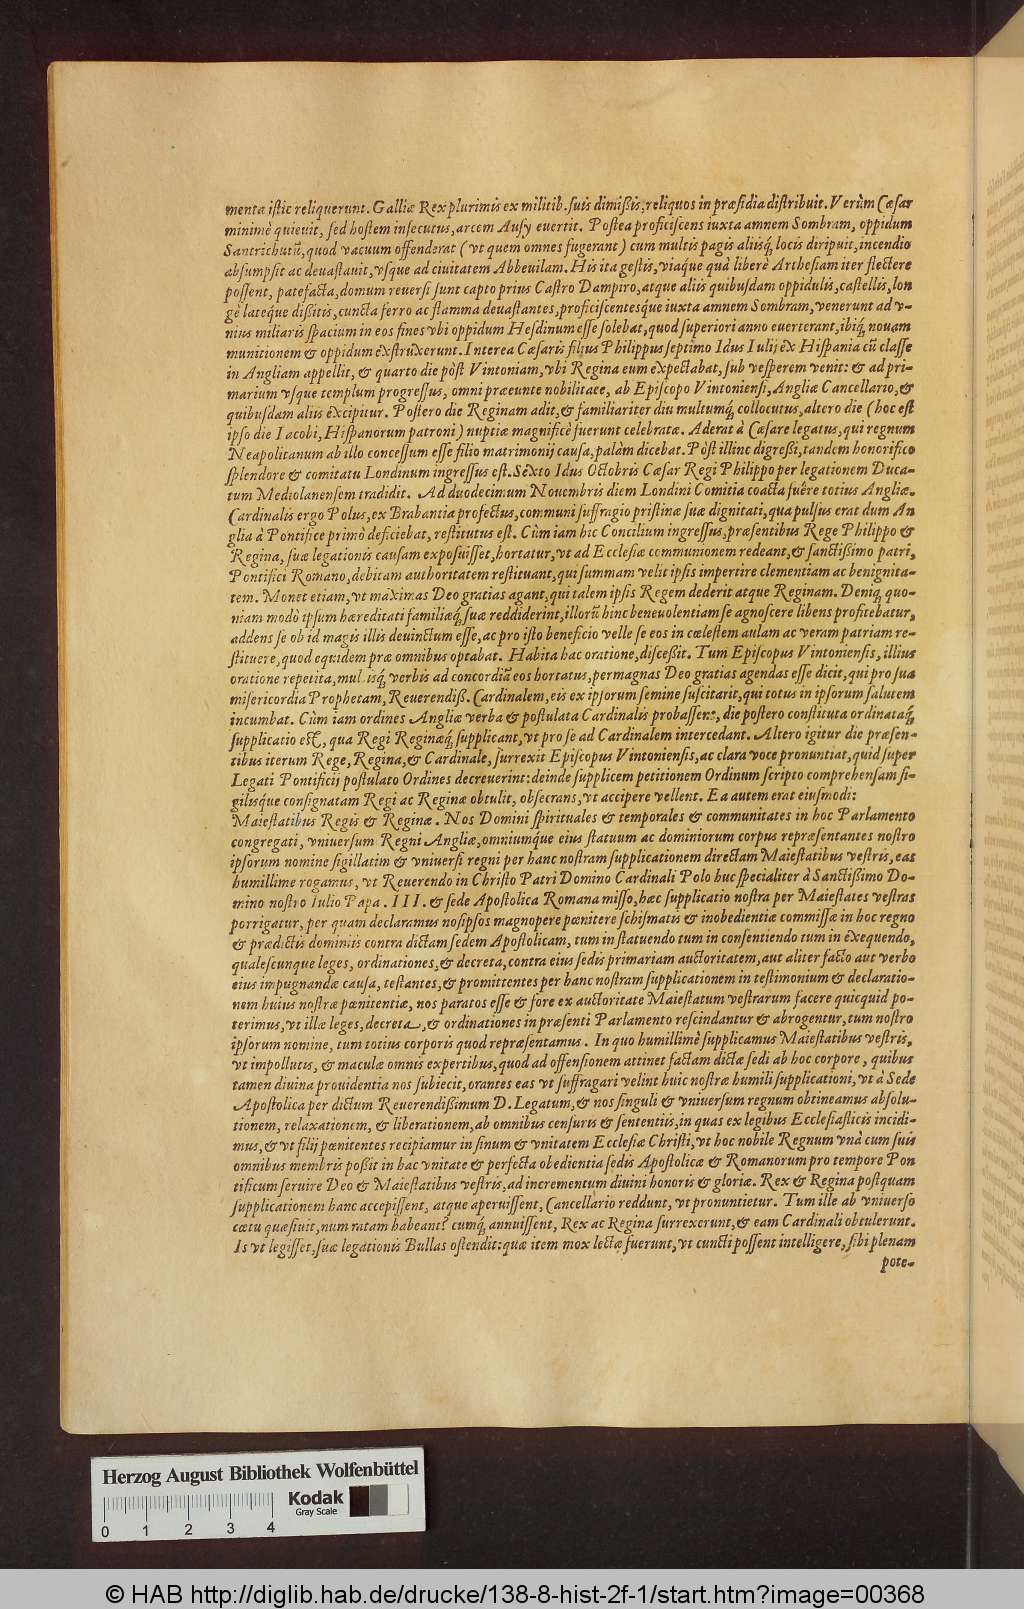 menta istic reliquerunt. Galliæ Rex plurimis ex militib. suis dimißis, reliquos in præsidia distribuit. Verùm Cæsar
minimè quieuit, sed hostem insecutus, arcem Ausy euertit. Postea proficiscens iuxta amnem Sombram, oppidum
Santrichutũ, quod vacuum offenderat (vt quem omnes fugerant) cum multis pagis aliisq́ locis diripuit, incendio
absumpsit ac deuastauit, vsque ad ciuitatem Abbeuilam. His ita gestis, viaque quà liberè Arthesiam iter flectere
possent, patefacta, domum reuersi sunt capto prius Castro Dampiro, atque aliis quibusdam oppidulis, castellis, lon
gè lateque dißitis, cuncta ferro ac flamma deuastantes, proficiscentesque iuxta amnem Sombram, venerunt ad v-
nius miliaris spacium in eos fines vbi oppidum Hesdinum esse solebat, quod superiori anno euerterant, ibiq́ nouam
munitionem & oppidum exstruxerunt. Interea Cæsaris filius Philippus septimo Idus Iulij ex Hispania cũ classe
in Angliam appellit, & quarto die pòst Vintoniam, vbi Regina eum expectabat, sub vesperem venit: & ad pri-
marium vsque templum progressus, omni præeunte nobilitate, ab Episcopo Vintoniensi, Angliæ Cancellario, &
quibusdam aliis excipitur. Postero die Reginam adit, & familiariter diu multumq́ collocutus, altero die (hoc est
ipso die Iacobi, Hispanorum patroni) nuptiæ magnificè fuerunt celebratæ. Aderat à Cæsare legatus, qui regnum
Neapolitanum ab illo concessum esse filio matrimonij causa, palàm dicebat. Pòst illinc digreßi, tandem honorifico
splendore & comitatu Londinum ingressus est. Sexto Idus Octobris Cæsar Regi Philippo per legationem Duca-
tum Mediolanensem tradidit. Ad duodecimum Nouembris diem Londini Comitia coacta fuêre totius Angliæ.
Cardinalis ergo Polus, ex Brabantia profectus, communi suffragio pristinæ suæ dignitati, qua pulsus erat dum An
glia à Pontifice primò deficiebat, restitutus est. Cùm iam hic Concilium ingressus, præsentibus Rege Philippo &
Regina, suæ legationis causam exposuisset, hortatur, vt ad Ecclesiæ communionem redeant, & sanctißimo patri,
Pontifici Romano, debitam authoritatem restituant, qui summam velit ipsis impertire clementiam ac benignita-
tem. Monet etiam, vt maximas Deo gratias agant, qui talem ipsis Regem dederit atque Reginam. Deniq́ quo-
niam modò ipsum hæreditati familiæq́ suæ reddiderint, illorũ hinc beneuolentiam se agnoscere libens profitebatur,
addens se ob id magis illis deuinctum esse, ac pro isto beneficio velle se eos in cœlestem aulam ac veram patriam re-
stituere, quod equidem præ omnibus optabat. Habita hac oratione, disceßit. Tum Episcopus Vintoniensis, illius
oratione repetita, mul. isq́ verbis ad concordiã eos hortatus, permagnas Deo gratias agendas esse dicit, qui pro sua
misericordia Prophetam, Reuerendiß. Cardinalem, eis ex ipsorum semine suscitarit, qui totus in ipsorum salutem
incumbat. Cùm iam ordines Angliæ verba & postulata Cardinalis probassent, die postero constituta ordinataq́
supplicatio est, qua Regi Reginæq́ supplicant, vt pro se ad Cardinalem intercedant. Altero igitur die præsen-
tibus iterum Rege, Regina, & Cardinale, surrexit Episcopus Vintoniensis, ac clara voce pronuntiat, quid super
Legati Pontificij postulato Ordines decreuerint: deinde supplicem petitionem Ordinum scripto comprehensam si-
gilisque consignatam Regi ac Reginæ obtulit, obsecrans, vt accipere vellent. Ea autem erat eiusmodi:
Maiestatibus Regis & Reginæ. Nos Domini spirituales & temporales & communitates in hoc Parlamento
congregati, vniuersum Regni Angliæ, omniumque eius statuum ac dominiorum corpus repræsentantes nostro
ipsorum nomine sigillatim & vniuersi regni per hanc nostram supplicationem directam Maiestatibus vestris, eas
humillime rogamus, vt Reuerendo in Christo Patri Domino Cardinali Polo huc specialiter à Sanctißimo Do-
mino nostro Iulio Papa. III. & sede Apostolica Romana misso, hæc supplicatio nostra per Maiestates vestras
porrigatur, per quam declaramus nosipsos magnopere pœnitere schismatis & inobedientiæ commissæ in hoc regno
& prædictis dominiis contra dictam sedem Apostolicam, tum in statuendo tum in consentiendo tum in exequendo,
qualescunque leges, ordinationes, & decreta, contra eius sedis primariam auctoritatem, aut aliter facto aut verbo
eius impugnandæ causa, testantes, & promittentes per hanc nostram supplicationem in testimonium & declaratio-
nem huius nostræ pœnitentiæ, nos paratos esse & fore ex auctoritate Maiestatum vestrarum facere quicquid po-
terimus, vt illæ leges, decreta, & ordinationes in præsenti Parlamento rescindantur & abrogentur, tum nostro
ipsorum nomine, tum totius corporis quod repræsentamus. In quo humillimè supplicamus Maiestatibus vestris,
vt impollutus, & maculæ omnis expertibus, quod ad offensionem attinet factam dictæ sedi ab hoc corpore, quibus
tamen diuina prouidentia nos subiecit, orantes eas vt suffragari velint huic nostræ humili supplicationi, vt à Sede
Apostolica per dictum Reuerendißimum D. Legatum, & nos singuli & vniuersum regnum obtineamus absolu-
tionem, relaxationem, & liberationem, ab omnibus censuris & sententiis, in quas ex legibus Ecclesiasticis incidi-
mus, & vt filij pœnitentes recipiamur in sinum & vnitatem Ecclesiæ Christi, vt hoc nobile Regnum vnà cum suis
omnibus membris poßit in hac vnitate & perfecta obedientia sedis Apostolicæ & Romanorum pro tempore Pon
tificum seruire Deo & Maiestatibus vestris, ad incrementum diuini honoris & gloriæ. Rex & Regina postquam
supplicationem hanc accepissent, atque aperuissent, Cancellario reddunt, vt pronuntietur. Tum ille ab vniuerso
cœtu quæsiuit, num ratam habeant? cumq́ annuissent, Rex ac Regina surrexerunt, & eam Cardinali obtulerunt.
Is vt legisset, suæ legationis Bullas ostendit: quæ item mox lectæ fuerunt, vt cuncti possent intelligere, sibi plenam
pote-
Herzog August Bibliothek Wolfenbüttel
Kodak
Gray Scale
0 1 2 3 4
© HAB http://diglib.hab.de/drucke/138-8-hist-2f-1/start.htm?image=00368